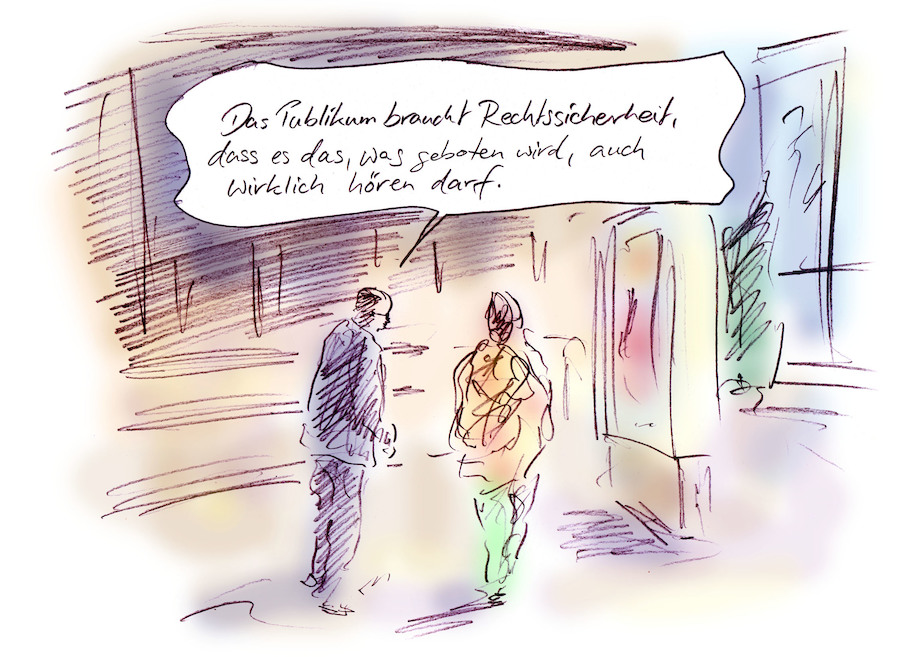 Das Publikum braucht Rechtssicherheit,
dass es das, was geboten wird, auch
wirklich hören darf.